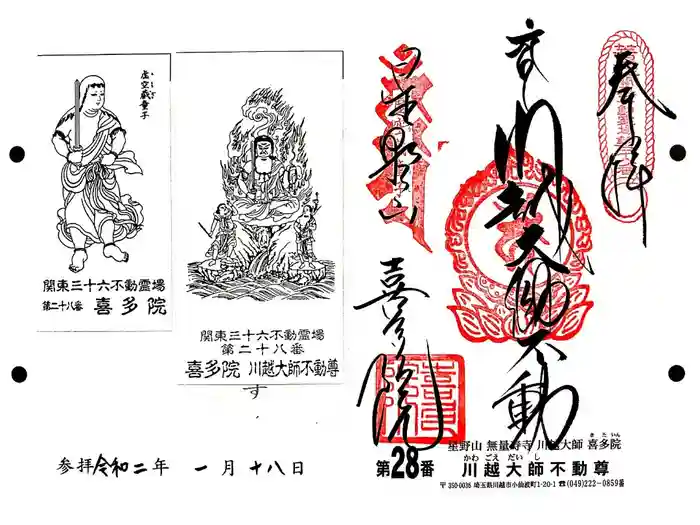 奉拝
川越大師不動
喜多院
虚空蔵童子
関東三十六不動霊場
第二十八番 喜多院
関東三十六不動霊場
第二十八番
喜多院 川越大師不動尊
す
参拝 令和二年 一月十八日
星野山 無量寿寺 川越大師 喜多院
きたいん
第28番
かわごえだいし
川越大師不動尊
〒350-0036 埼玉県川越市小仙波町1-20-1 ☎(049)222-0859番